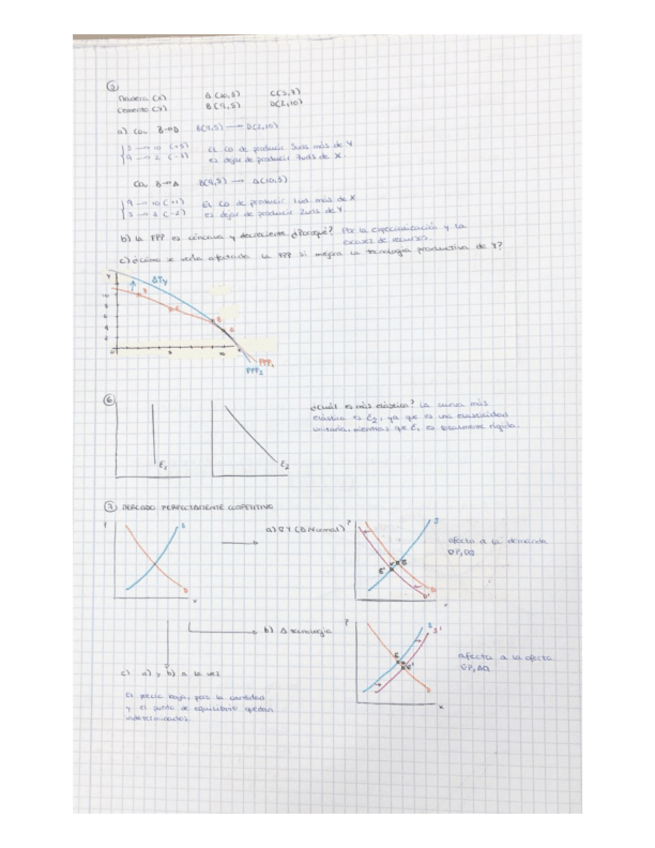 ⑤
Madera (X) A(10,3) C(5,7)
Cemento (Y) B(9,5) D(2,10)
a) Co. B→D B(9,5) → D(2,10)
5 → 10 (+5) El CO de producir 5uds más de Y
9 → 2 (-7) es dejar de producir 7uds de X.
Co. B→A B(9,5) → A(10,3)
9 → 10 (+1) El CO de producir 1ud más de X
es dejar de producir 2uds de Y.
b) La FPP es cóncava y decreciente ¿Porqué? Por la especialización y la
escasez de recursos.
c) ¿Cómo se vería afectada la FPP si mejora la tecnología productiva de Y?
Y
ΔTy
10
8
6
4
2
5
10
FPP1
FPP2
⑥
¿Cuál es más elástica? La curva más
elástica es E2, ya que es una elasticidad
unitaria, mientras que E1 es totalmente rígida.
E1
E2
⑦ MERCADO PERFECTAMENTE COMPETITIVO
Y
S
D
X
a) ∇Y (B.Normal)
P
S
E
E'
D
D'
afecta a la demanda
∇P,∇Q
b) Δ tecnología
P
S
S'
E
E'
D
X
afecta a la oferta
∇P,ΔQ
c) a) y b) a la vez
El precio baja, pero la cantidad
y el punto de equilibrio quedan
indeterminados.